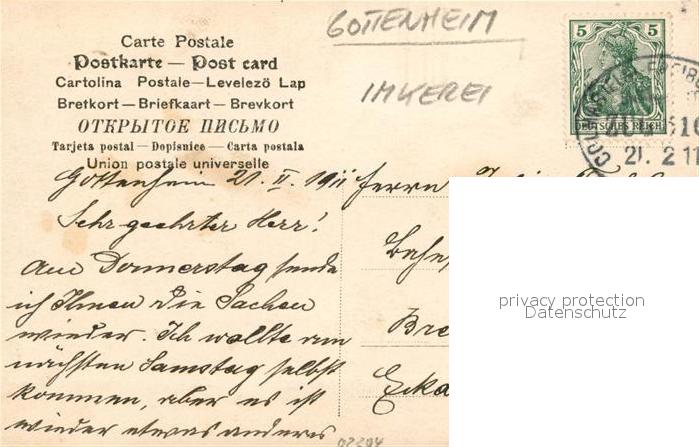 GOTTENHEIM
IMKEREI
Carte Postale
Postkarte — Post card
Cartolina Postale — Levelezö Lap
Bretkort — Briefkaart — Brevkort
ОТКРЫТОЕ ПИСЬМО
Tarjeta postal — Dopisnice — Carta postala
Union postale universelle
5 5
DEUTSCHES REICH
21. 2 11
Gottenheim 21. II. 1911
Sehr geehrter Herr!
Am Donnerstag sende
ich Ihnen die Sachen
wieder. Ich wollte am
nächsten Samstag selbst
kommen, aber es ist
wieder etwas anderes
Herrn
privacy protection
Datenschutz